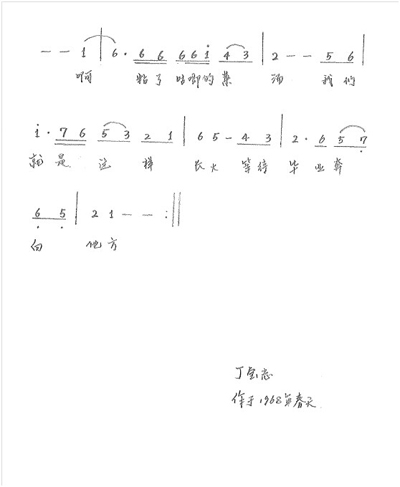 — — 1 | 6 · 6 6 6 6 i 4 3 | 2 — — 5 6 |
啊 黏了 的菜 汤 我们
i · 7 6 5 3 2 1 | 6 5 — 4 3 | 2 · 6 5 7
就是 这样 长久 等待 毕业奔
6 5 | 2 1 — — :||
向 地方
丁
作于1968年春天